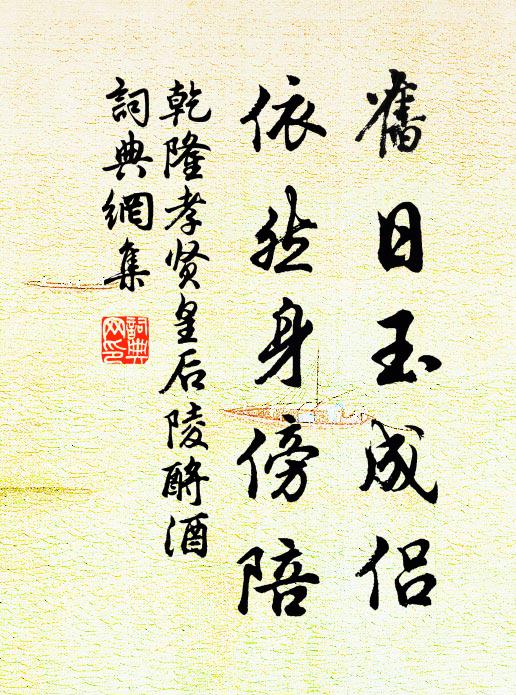 舊日玉成侣
依然身傍陪
乾隆孝贤皇后陵酹酒
詞典網集
詞典網印